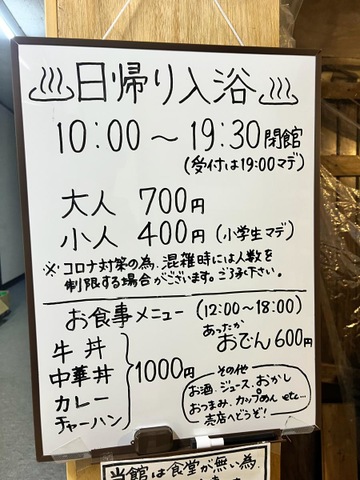 ♨日帰り入浴♨
10:00〜19:30閉館
(受付は19:00マデ)
大人 700円
小人 400円(小学生マデ)
※コロナ対策の為、混雑時には人数を
制限する場合がございます。ご了承下さい。
お食事メニュー (12:00〜18:00)
牛丼
中華丼
カレー
チャーハン
1000円
あったか
おでん600円
その他
お酒、ジュース、おかし
おつまみ、カップめん etc…
売店へどうぞ!
当館は食堂が無い為、